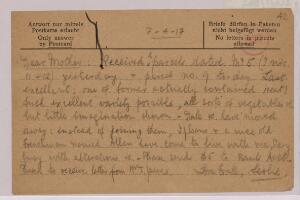 42
Antwort nur mittels
Postkarte erlaubt
Only answer
by Postcard
7-4-17
Briefe dürfen in Paketen
nicht beigefügt werden
No letters in parcels
allowed!
Dear Mother: Received 3 parcels dated Mar 5 (Nos.
11 & 12) yesterday & parcel no. 9 to-day. Last
excellent; one of former actually contained meat
Such excellent variety possible, all sorts of vegetables etc
but little imagination shown. have moved
away: instead of joining them, I & a nice old
Frenchman named Allen have come to live with me, Very
busy with alterations. Please send $5 to Bank
to receive letter from Mrs. Jones. Leslie